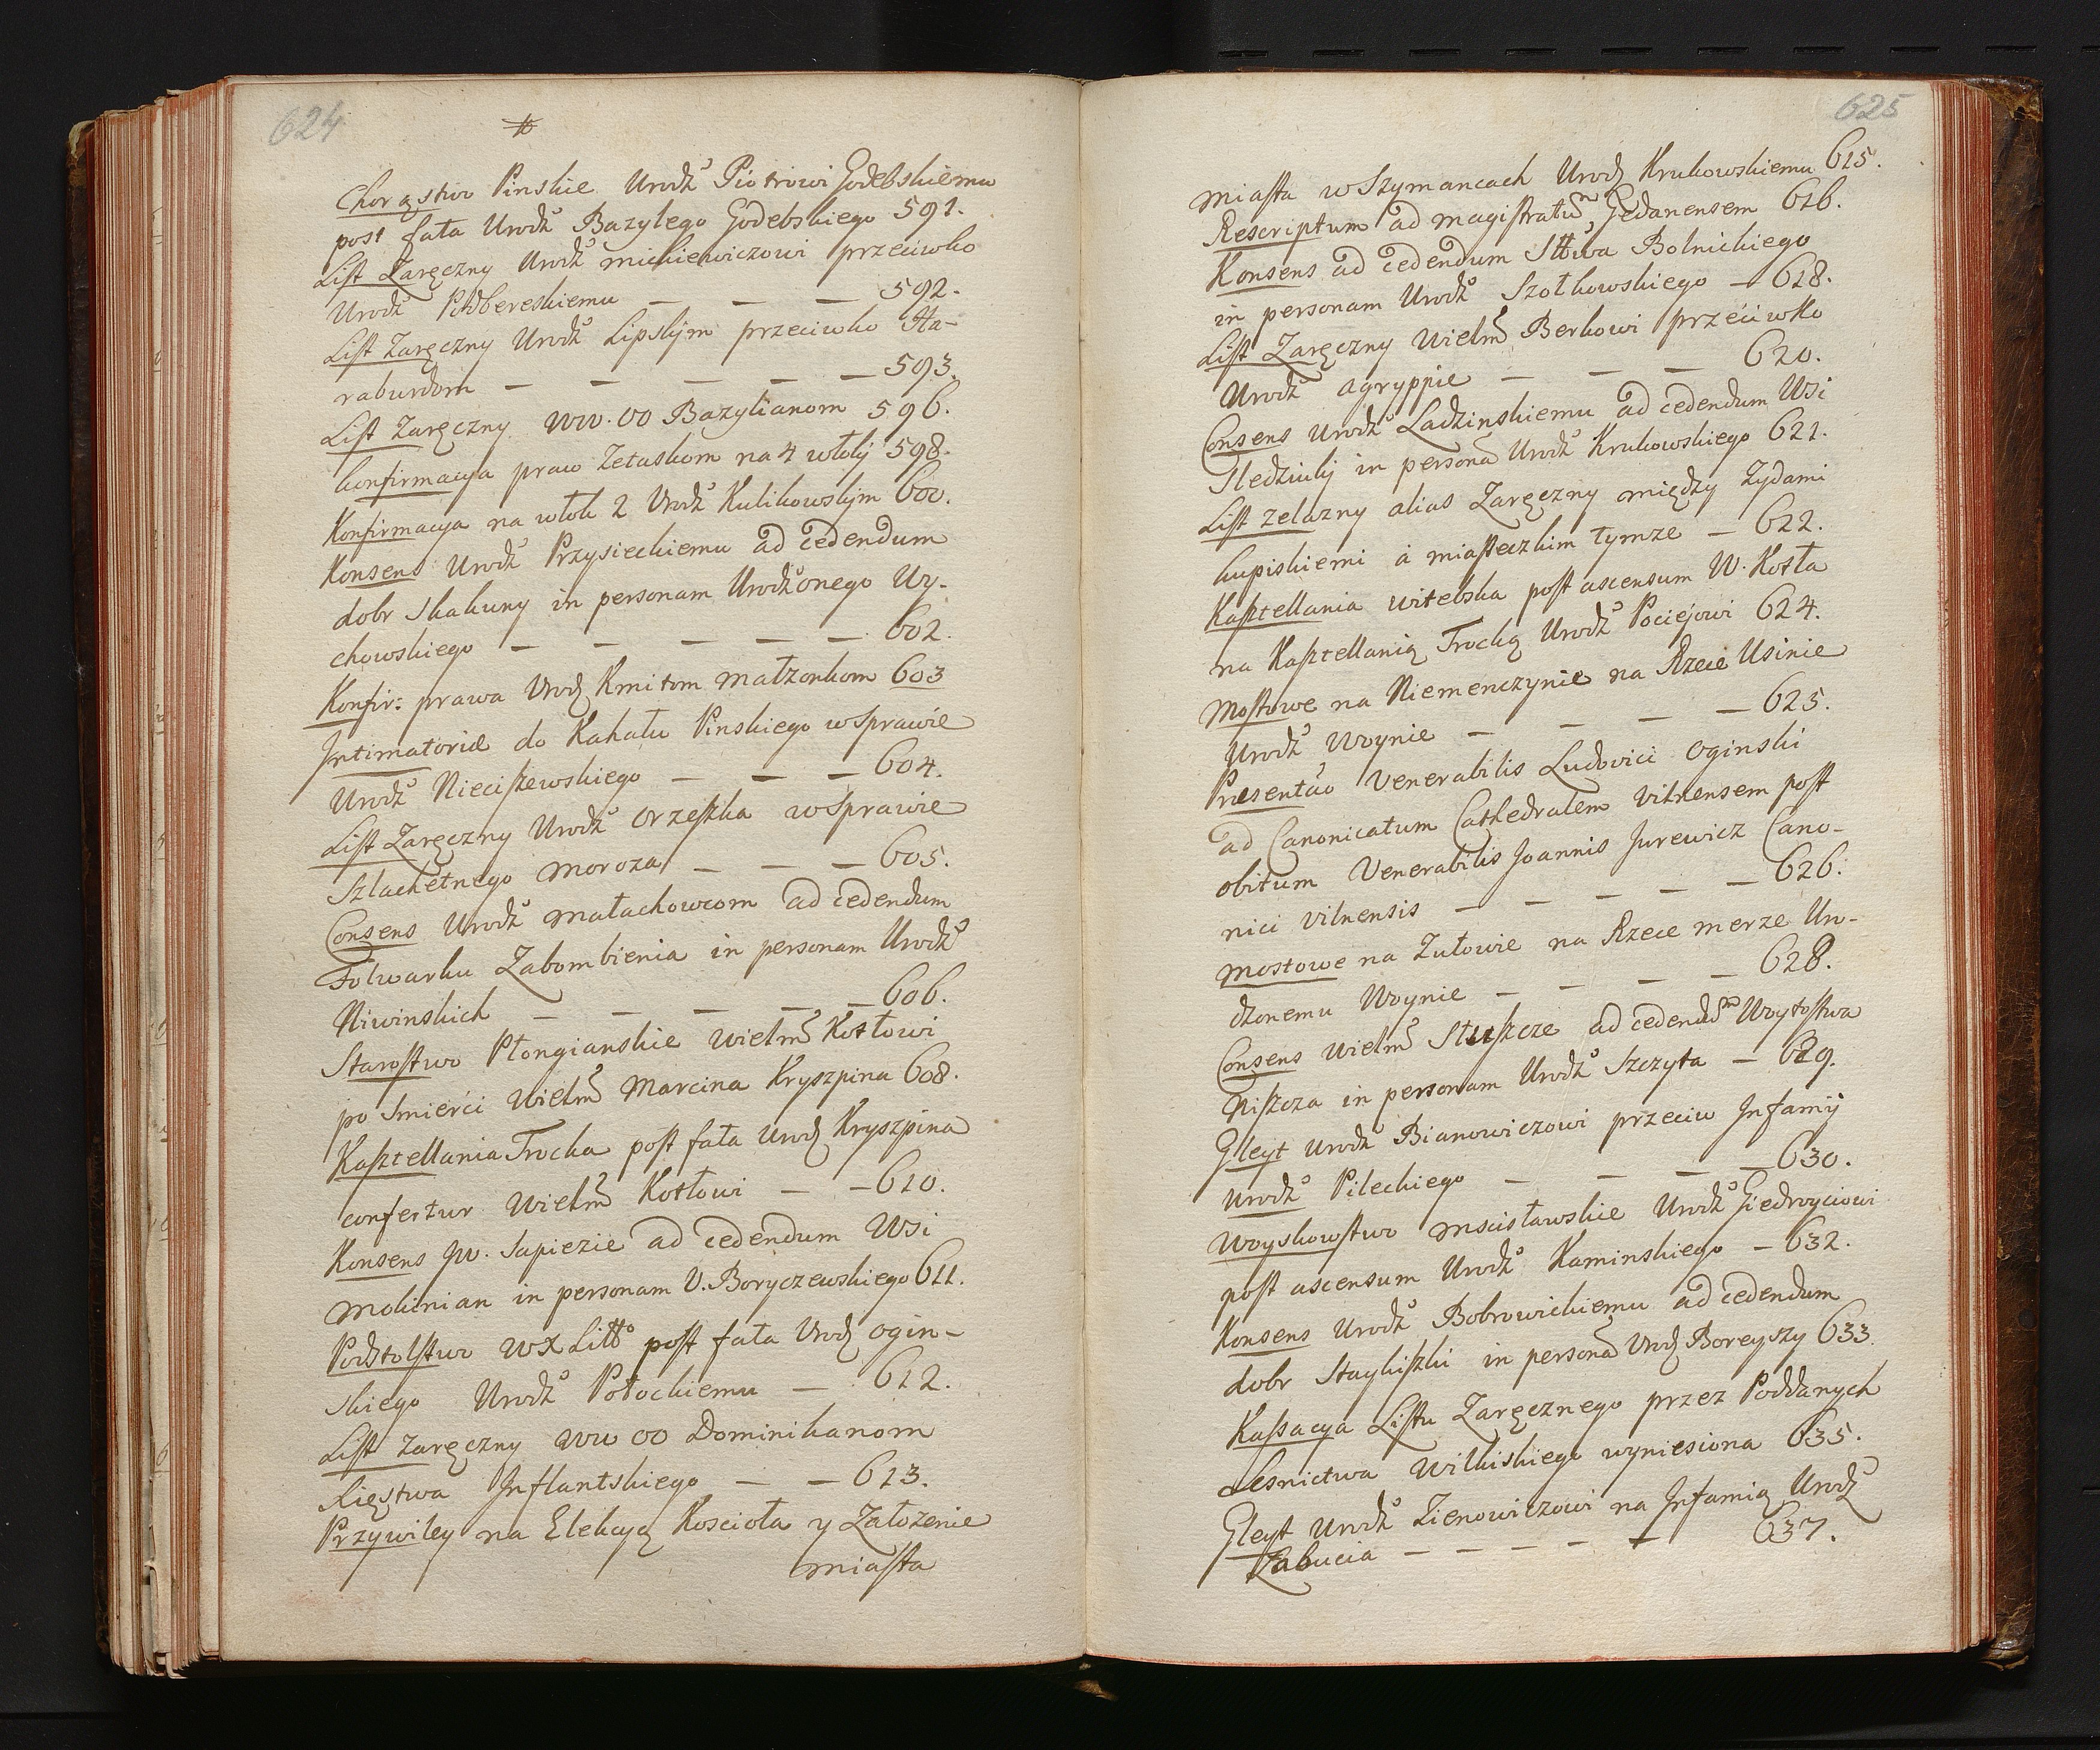 624
Chorąstwo Pinskie Urodz° Piotrowi Godebskiemu
post fata Urodz° Bazylego Godebskiego 591.
List Zaręczny Urodz° mickiewiczowi przeciwko
Urodz° Podbereskiemu — — — 592.
List Zaręczny Urodz° Lipskim przeciwko Ha-
raburdom — — — — — 593.
List Zaręczny WW. OO Bazylianom 596.
konfirmacya praw Zetaskom na 4 włoky 598.
Konfirmacya na włok 2 Urodz° Kulikowskim 600.
Konsens Urodz° Przysieckiemu ad cedendum
dobr Skakuny in personam Urodzonego Wy-
chowskiego — — — — — 602.
Konfir: prawa Urodz Kmitom małzonkom 603
Intimatoriæ do Kahału Pinskiego w sprawie
Urodz° Nieciszewskiego — — — 604.
List Zaręczny Urodz° Orzeszka w Sprawie
Szlachetnego Moroza — — — 605.
Consens Urodz° Małachowcom ad cedendum
Folwarku Zabombienia in personam Urodz°
Niwinskich — — — — — 606.
Starostwo Płongianskie Wielm° Kotłowi
po Smierci Wielm° Marcina Kryszpina 608.
Kasztellania Trocka post fata Urodz Kryszpina
confertur Wielm° Kotłowi — — 610.
Konsens JW. Sapiezie ad cedendum Wsi
Molinian in personam U. Boryczewskiego 611.
Podstolstwo WX Litt° post fata Urodz Ogin-
skiego Urodz° Potockiemu — 612.
List Zaręczny WW OO Dominikanom
Xięstwa Inflantskiego — — 613.
Przywiley na Elekcyą Koscioła y Załozenie
miasta
625
miasta w Szymancach Urodz Krukowskiemu 615.
Rescriptum ad magistratum Gedanensem 616.
Konsens ad cedendum Sttwa Bolnickiego
in personam Urodz° Szołkowskiego — 618.
List Zaręczny Wielm° Berkowi przeciwko
Urodz° Agryppie — — — 620.
Consens Urodz° Ladzinskiemu ad cedendum Wsi
Sledziuky in personā Urodz° Krukowskiego 621.
List zelazny alias Zaręczny między Zydami
kupiskiemi à miasteczkim tymze — 622.
Kasztellania witebska post ascensum W. Kotła
na Kasztellanią Trocką Urodz° Pociejowi 624.
Mostowe na Niemenczynie na Rzece Usinie
Urodz° Woynie — — — — 625.
Præsentao Venerabilis Ludovici Oginski
ad Canonicatum Cathedralem Vilnensem post
obitum Venerabilis Joannis Jurewicz Cano-
nici Vilnensis — — — — — 626.
Mostowe na Zułowie na Rzece Merze Uro-
dzonemu Woynie — — — — 628.
Consens Wielm° Słuszcze ad cedendum Woytostwa
Niszcza in personam Urodz° Szczyta — 629.
Gleyt Urodz° Bianowiczowi przeciw Infamij
Urodz° Pileckiego — — — — 630.
Woyskowstwo Mscisławskie Urodz° Giedroyciowi
post ascensum Urodz° Kaminskiego — 632.
Konsens Urodz° Bobrowickiemu ad cedendum
dobr Staykiszki in personā Urodz Boreyszy 633
Kassacya Listu Zaręcznego przez Poddanych
Lesnictwa Wilkiskiego wyniesiona 635.
Gleyt Urodz° Zienowiczowi na Infamią Urodz°
Łabucia — — — — — 637.